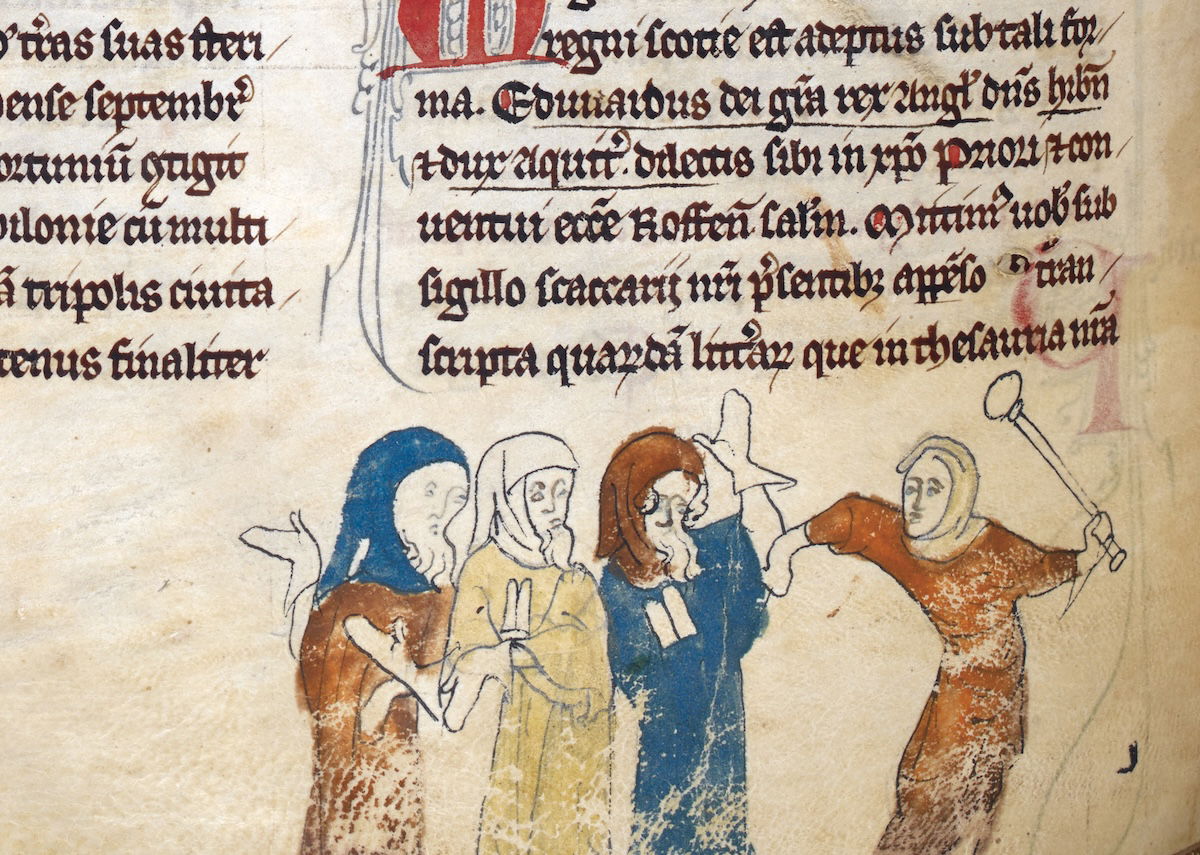 tr̃as suas steri
septembr̃
ↄtigit
cũ multi
tripolis ciuita
tenus finaliter
regni scotie est adeptus sub tali for
ma. Edwardus dei gr̃a rex Angl̃ dñs hib̃n
⁊ dux Aquit̃. dilectis sibi in xp̃o Priori ⁊ con
uentui ecc̃e Roffen̄ sal̃m. Mittim᷒ uob̃ sub
sigillo scaccarij nr̃i p̃sentib᷒ app̃eso tran
scripta quarũdã litt̃aꝝ que in thesauria nr̃a